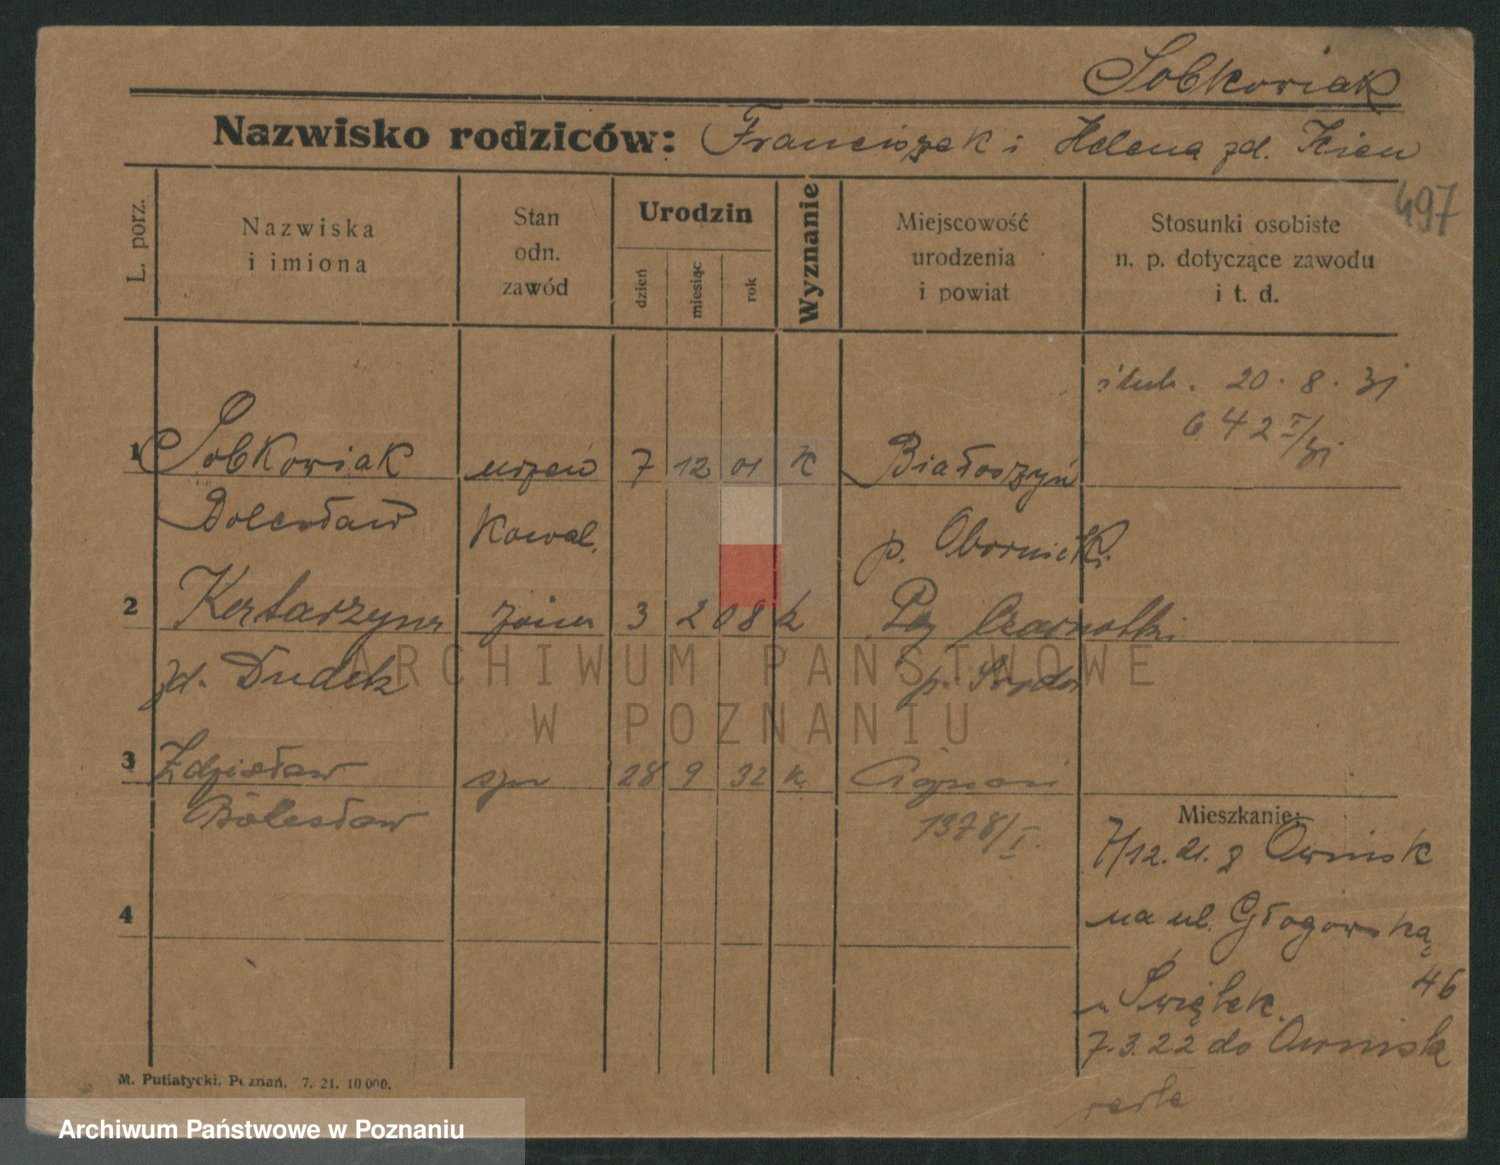 Sobkowiak
Nazwisko rodziców: Franciszek i Helena zd.
497
L. porz.
Nazwiska i imiona
Stan odn. zawód
Urodzin
dzień
miesiąc
rok
Wyznanie
Miejscowość urodzenia i powiat
Stosunki osobiste n. p. dotyczące zawodu i t. d.
20. 8. 31
642 I/31
1 Sobkowiak 7 12 01 k Białoszyń
Bolesław kowal. p. Obornicki
2 Katarzyna żona 3 2 08 k Czarnotki
zd. Dudek p. Środa
3 Zdzisław syn 28 9 32 k
Bolesław 1378/I.
Mieszkanie:
7/12.21. z Owińsk
na ul. Głogowską
46
u Świątek.
7.3.22 do Owińsk
4
M. Putiatycki. Poznań. 7. 21. 10 000.
ARCHIWUM PAŃSTWOWE
W POZNANIU
Archiwum Państwowe w Poznaniu